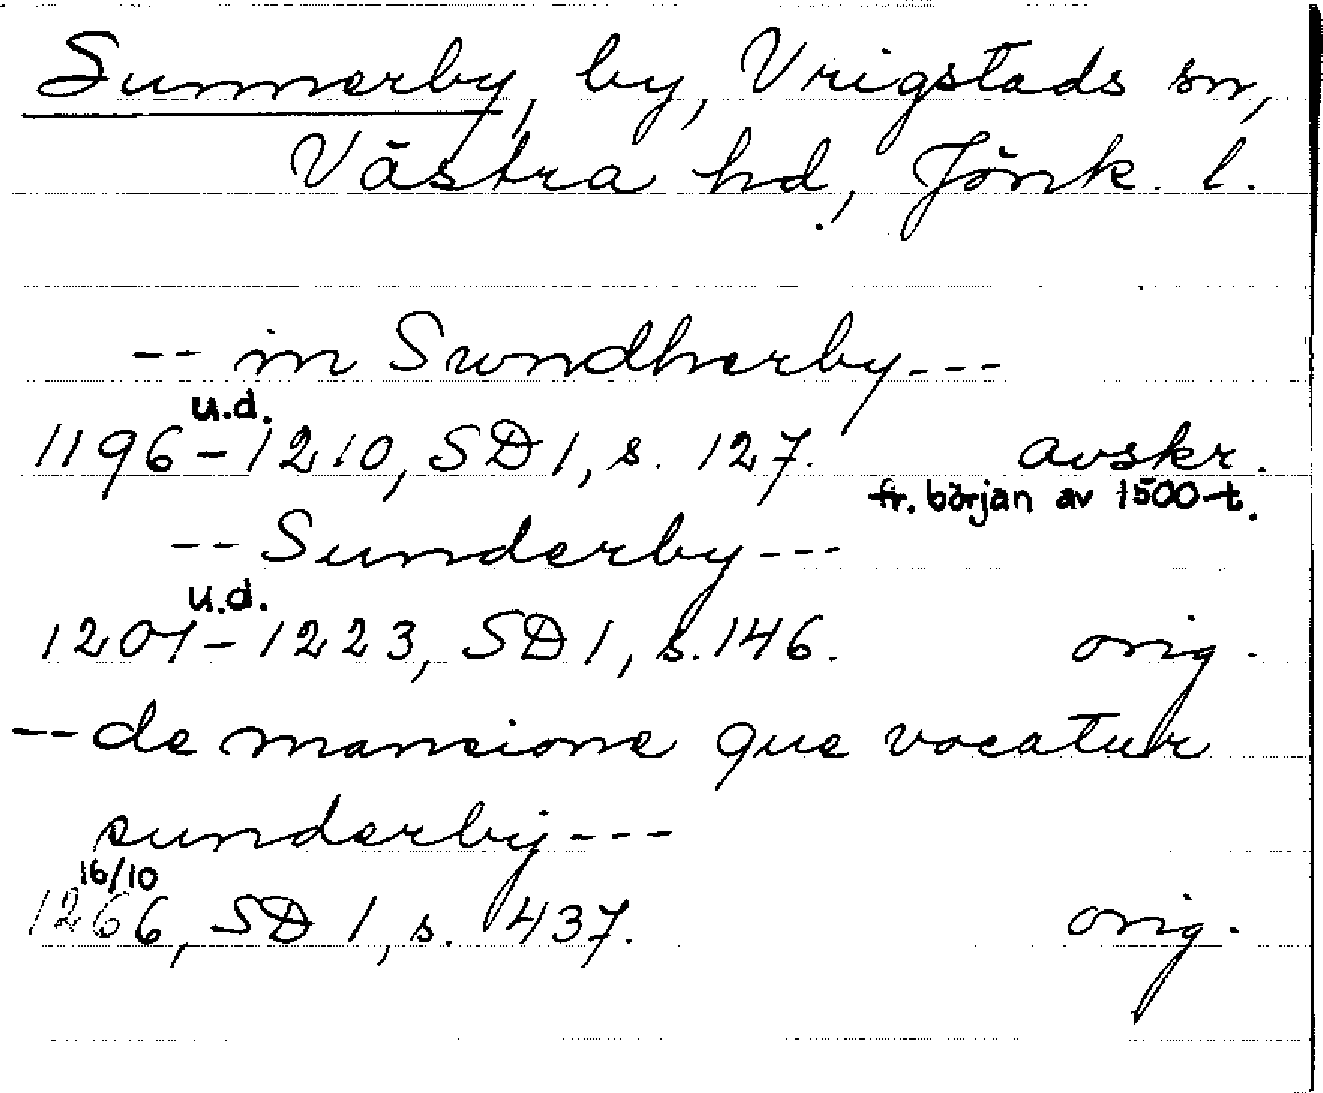 Sunnerby, by, Vrigstads sn,
Västra hd, Jönk. l.
-- in Swndherby ---
u.d.
1196-1210, SD 1, s. 127. avskr.
fr. början av 1500-t.
-- Sunderby ---
u.d.
1207-1223, SD 1, s. 146. orig.
-- de mansione que vocatur
sunderby ---
16/10
1266, SD 1, s. 437. orig.